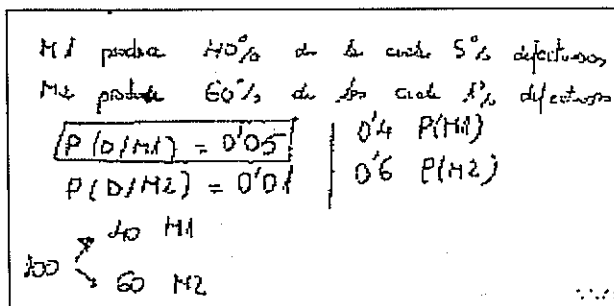 M1 produce 40% de los cuales 5% defectuosos
M2 produce 60% de los cuales 1% defectuosos
P(D/M1) = 0'05 | 0'4 P(M1)
P(D/M2) = 0'01 | 0'6 P(M2)
40 M1
100
60 M2